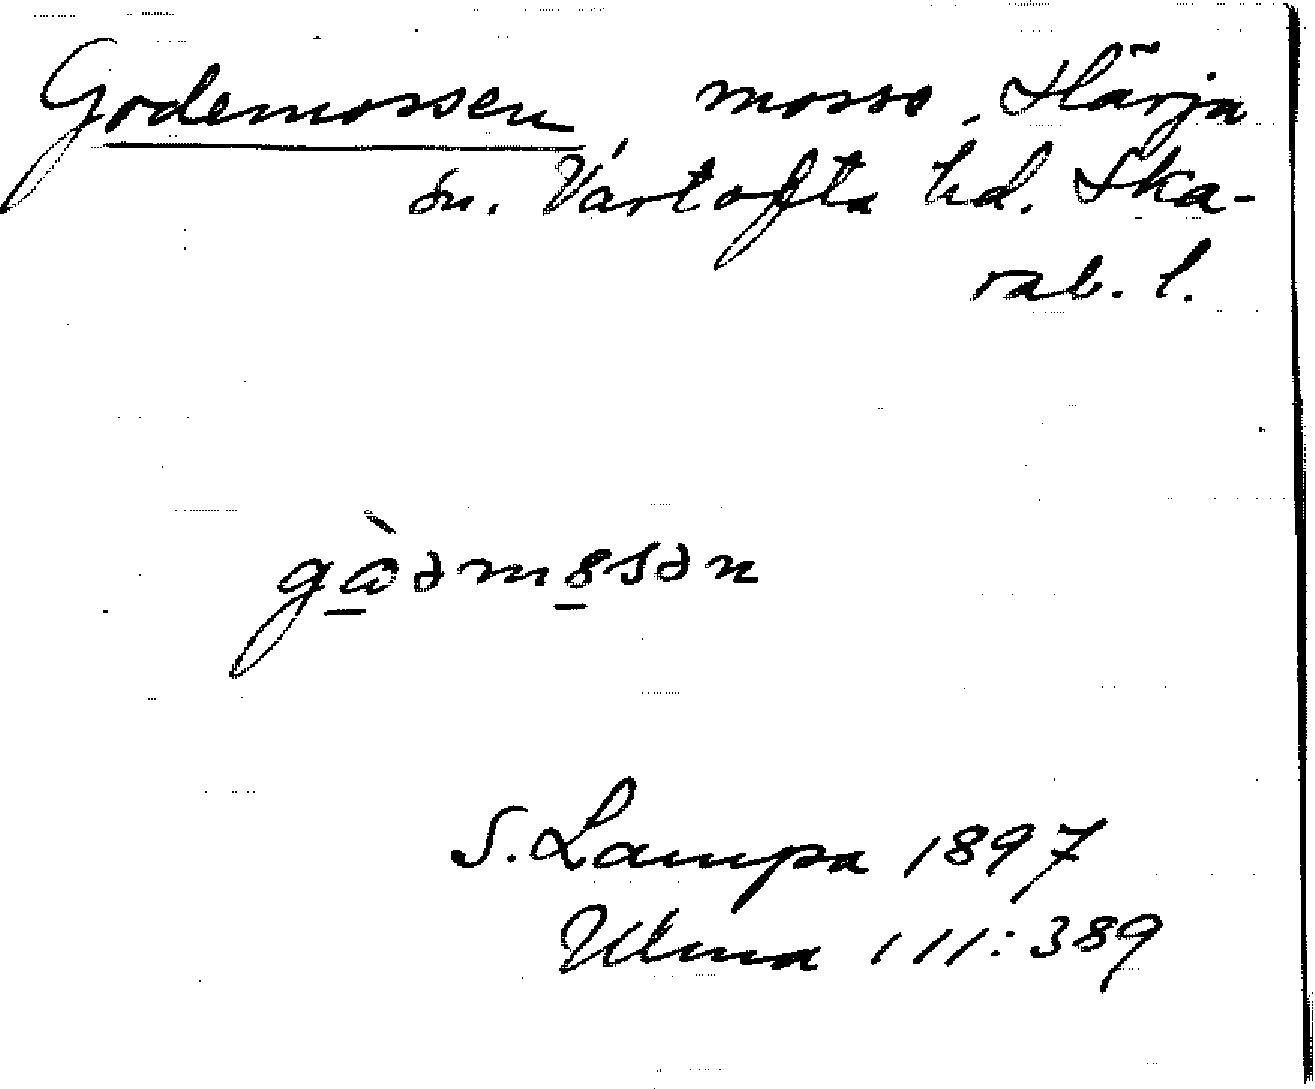 Godemossen, mosse, Härja
sn. Vartofta hd. Ska-
rab. l.
gàəmosən
S. Lampa 1897
Ulma 111:389